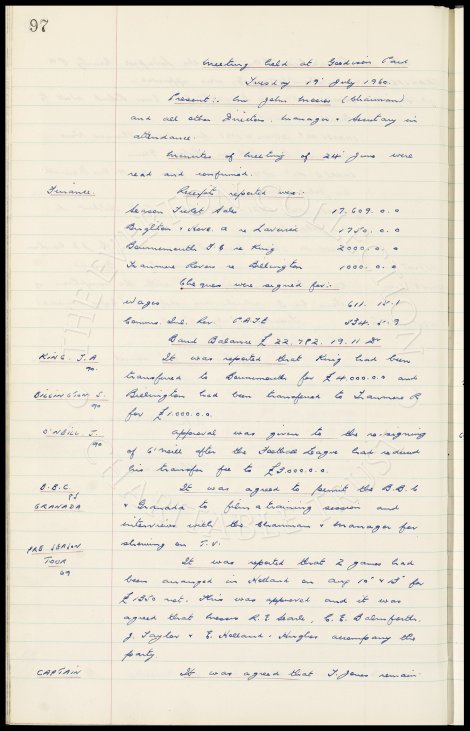 97
Meeting held at Goodison Park
Tuesday 19th July 1960.
Present:- Mr John Moores (Chairman)
and all other Directors. Manager & Secretary in
attendance.
Minutes of meeting of 24th June were
read and confirmed.
Finance. Receipts reported were:-
Season Ticket Sales 17,609. 0. 0
Brighton & Hove. A re Laverick 1750. 0. 0
Bournemouth F C re King 2000. 0. 0
Tranmere Rovers re Billington 1000. 0. 0
Cheques were signed for:-
Wages
Comms. Inl. Rev P.A.Y.E
Bank Balance £ 22,792. 19. 11 Dr
KING. J. A It was reported that King had been
transferred to Bournemouth for £4,000.0.0 and
BILLINGTON. S. Billington had been transferred to Tranmere R
for £1,000.0.0.
O'NEILL. J. Approval was given to the re-signing
of O'Neill after the Football League had reduced
his transfer fee to £3,000.0.0.
B.B.C. It was agreed to permit the B.B.C
GRANADA & Granada to film a training session and
interviews with the Chairman & Manager for
showing on T.V.
PRE SEASON
TOUR It was reported that 2 games had
been arranged in Holland on Aug 10th & 13th for
£1350 net. This was approved and it was
agreed that Messrs R. E. Searle, C. E. Balmforth,
J. Taylor & E. Holland-Hughes accompany the
party.
CAPTAIN It was agreed that T. Jones remain
THE EVERTON COLLECTION
CHARITABLE TRUST